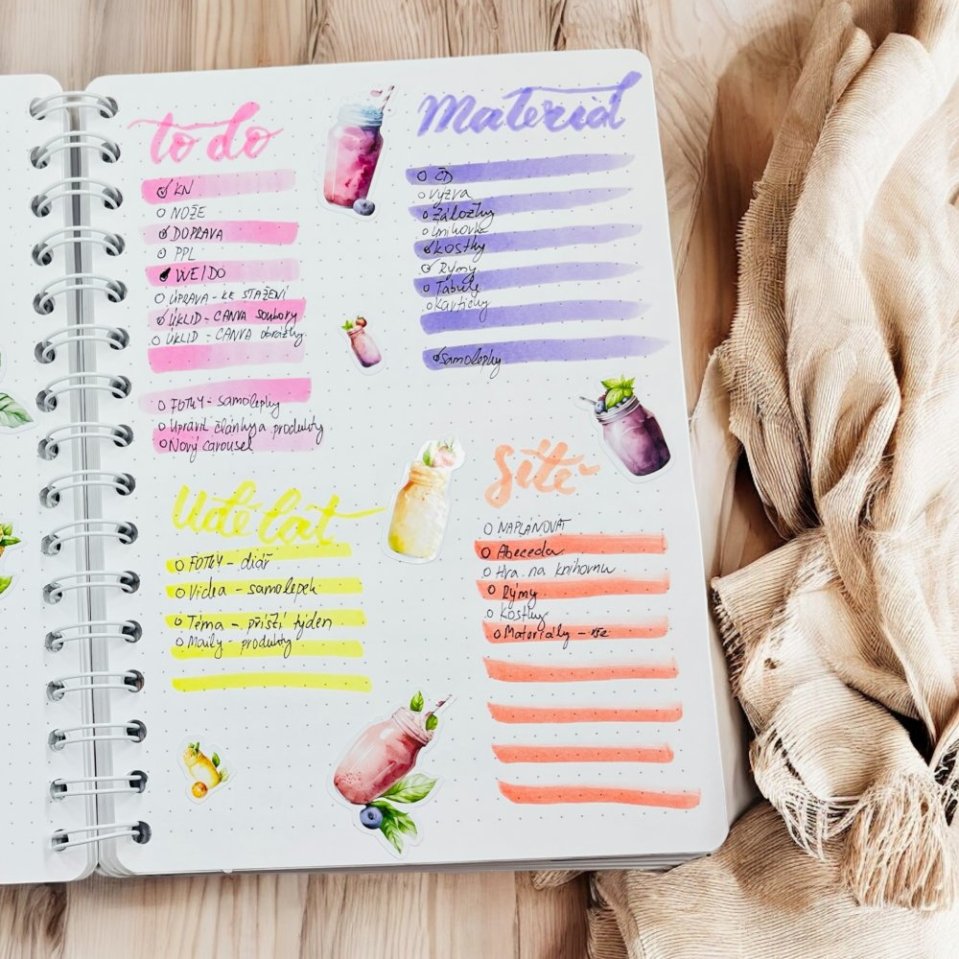 to do
KN
NOŽE
DOPRAVA
PPL
WEIDO
ÚPRAVA - KE STAŽENÍ
ÚKLID - CANVA soubory
ÚKLID - CANVA obrázky
FOTKY - samolepky
Upravit články a produkty
Nový carousel
Materiál
ČD
výzva
záložky
knihovka
kostky
Rýmy
Tabule
Kartičky
samolepky
Udělat
FOTKY - diář
Videa - samolepek
Téma - příští týden
Maily - produkty
Sítě
NAPLÁNOVAT
Abeceda
Hra na knihovnu
Rýmy
Kostky
Materiály - vše